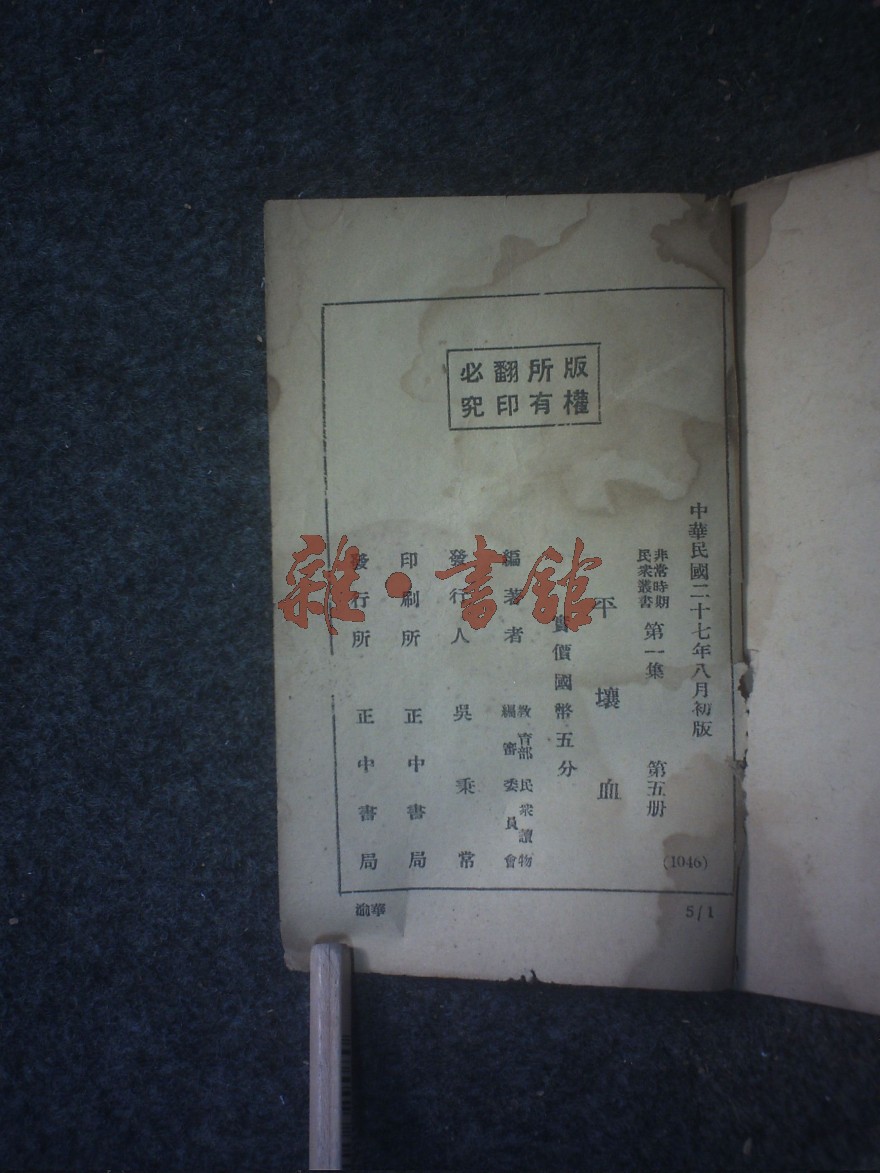 版權
所有
翻印
必究
中華民國二十七年八月初版
非常時期
民衆叢書
第一集 第五册
(1046)
平壤血
實價國幣五分
編著者 教育部民衆讀物
編審委員會
發行人 吳秉常
印刷所 正中書局
發行所 正中書局
雜·書館
渝華
5/1